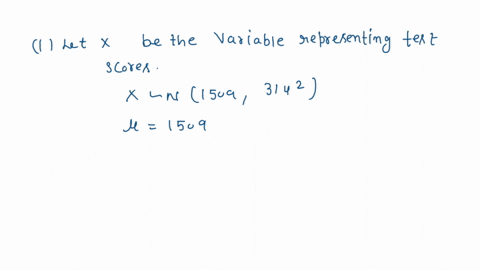 (1) Let x be the variable representing test
scores.
X ~ N (1509, 314²)
μ = 1509